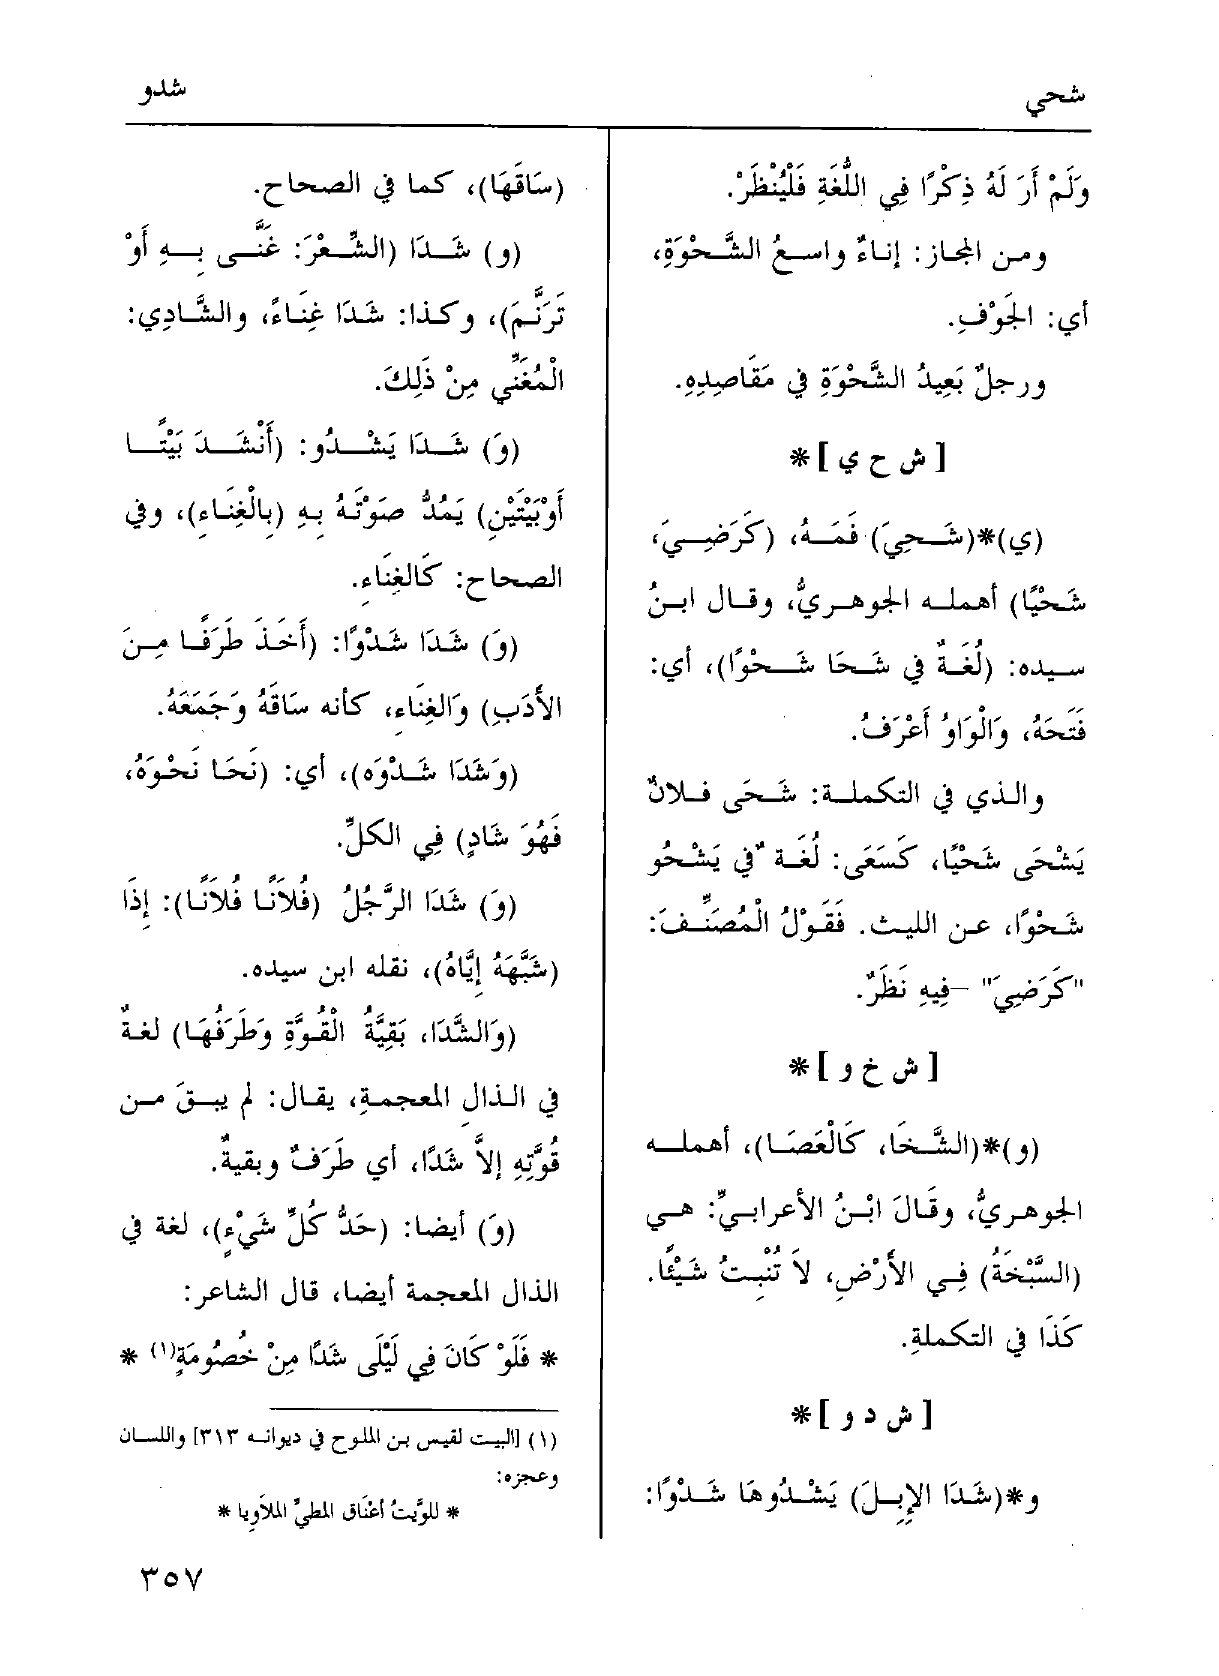 شحي
شدو
وَلَمْ أَرَ لَهُ ذِكْرًا فِي اللُّغَةِ فَلْيُنْظَرْ.
ومن المجاز: إناءٌ واسعُ الشَّحْوَةِ،
أي: الجَوْفِ.
ورجلٌ بَعِيدُ الشَّحْوَةِ في مَقَاصِدِهِ.
[ ش ح ي ] *
(ي)*(شَحِيَ) فَمَهُ، (كَرَضِيَ،
شَحْيًا) أهمله الجوهريُّ، وقال ابنُ
سيده: (لُغَةٌ في شَحَا شَحْوًا)، أي:
فَتَحَهُ، وَالْوَاوُ أَعْرَفُ.
والذي في التكملة: شَحَى فلانٌ
يَشْحَى شَحْيًا، كَسَعَى: لُغَةٌ في يَشْحُو
شَحْوًا، عن الليث. فَقَوْلُ الْمُصَنِّفَ:
"كَرَضِيَ" -فِيهِ نَظَرٌ.
[ ش خ و ] *
(و)*(الشَّخَا، كَالْعَصَا)، أهمله
الجوهريُّ، وقَالَ ابْنُ الأعرابيِّ: هي
(السَّبْخَةُ) فِي الأَرْضِ، لاَ تُنْبِتُ شَيْئًا.
كَذَا في التكملةِ.
[ ش د و ] *
و*(شَدَا الإِبِلَ) يَشْدُوهَا شَدْوًا:
(سَاقَهَا)، كما في الصحاح.
(و) شَدَا (الشِّعْرَ: غَنَّى بِهِ أَوْ
تَرَنَّمَ)، وكذا: شَدَا غِنَاءً، والشَّادِي:
الْمُغَنِّي مِنْ ذَلِكَ.
(وَ) شَدَا يَشْدُو: (أَنْشَدَ بَيْتًا
أَوْبَيْتَيْنِ) يَمُدُّ صَوْتَهُ بِهِ (بِالْغِنَاءِ)، وفي
الصحاح: كَالغِنَاءِ.
(وَ) شَدَا شَدْوًا: (أَخَذَ طَرَفًا مِنَ
الأَدَبِ) وَالغِنَاءِ، كأنه سَاقَهُ وَجَمَعَهُ.
(وَشَدَا شَدْوَه)، أي: (نَحَا نَحْوَهُ،
فَهُوَ شَادٍ) فِي الكلِّ.
(وَ) شَدَا الرَّجُلُ (فُلاَنًا فُلاَنًا): إِذَا
(شَبَّهَهُ إِيَّاهُ)، نقله ابن سيده.
(وَالشَّدَا، بَقِيَّةُ الْقُوَّةِ وَطَرَفُهَا) لغةٌ
في الذالِ المعجمةِ، يقال: لم يبقَ من
قُوَّتِهِ إلاَّ شَدًا، أي طَرَفٌ وبقيةٌ.
(وَ) أيضا: (حَدُّ كُلِّ شَيْءٍ)، لغة في
الذال المعجمة أيضا، قال الشاعر:
* فَلَوْ كَانَ فِي لَيْلَى شَدًا مِنْ خُصُومَةٍ(١) *
(١) [البيت لقيس بن الملوح في ديوانه ٣١٣] واللسان
وعجزه:
* للوَّيتُ أعْنَاق المطيِّ الملاَوِيا *
٣٥٧